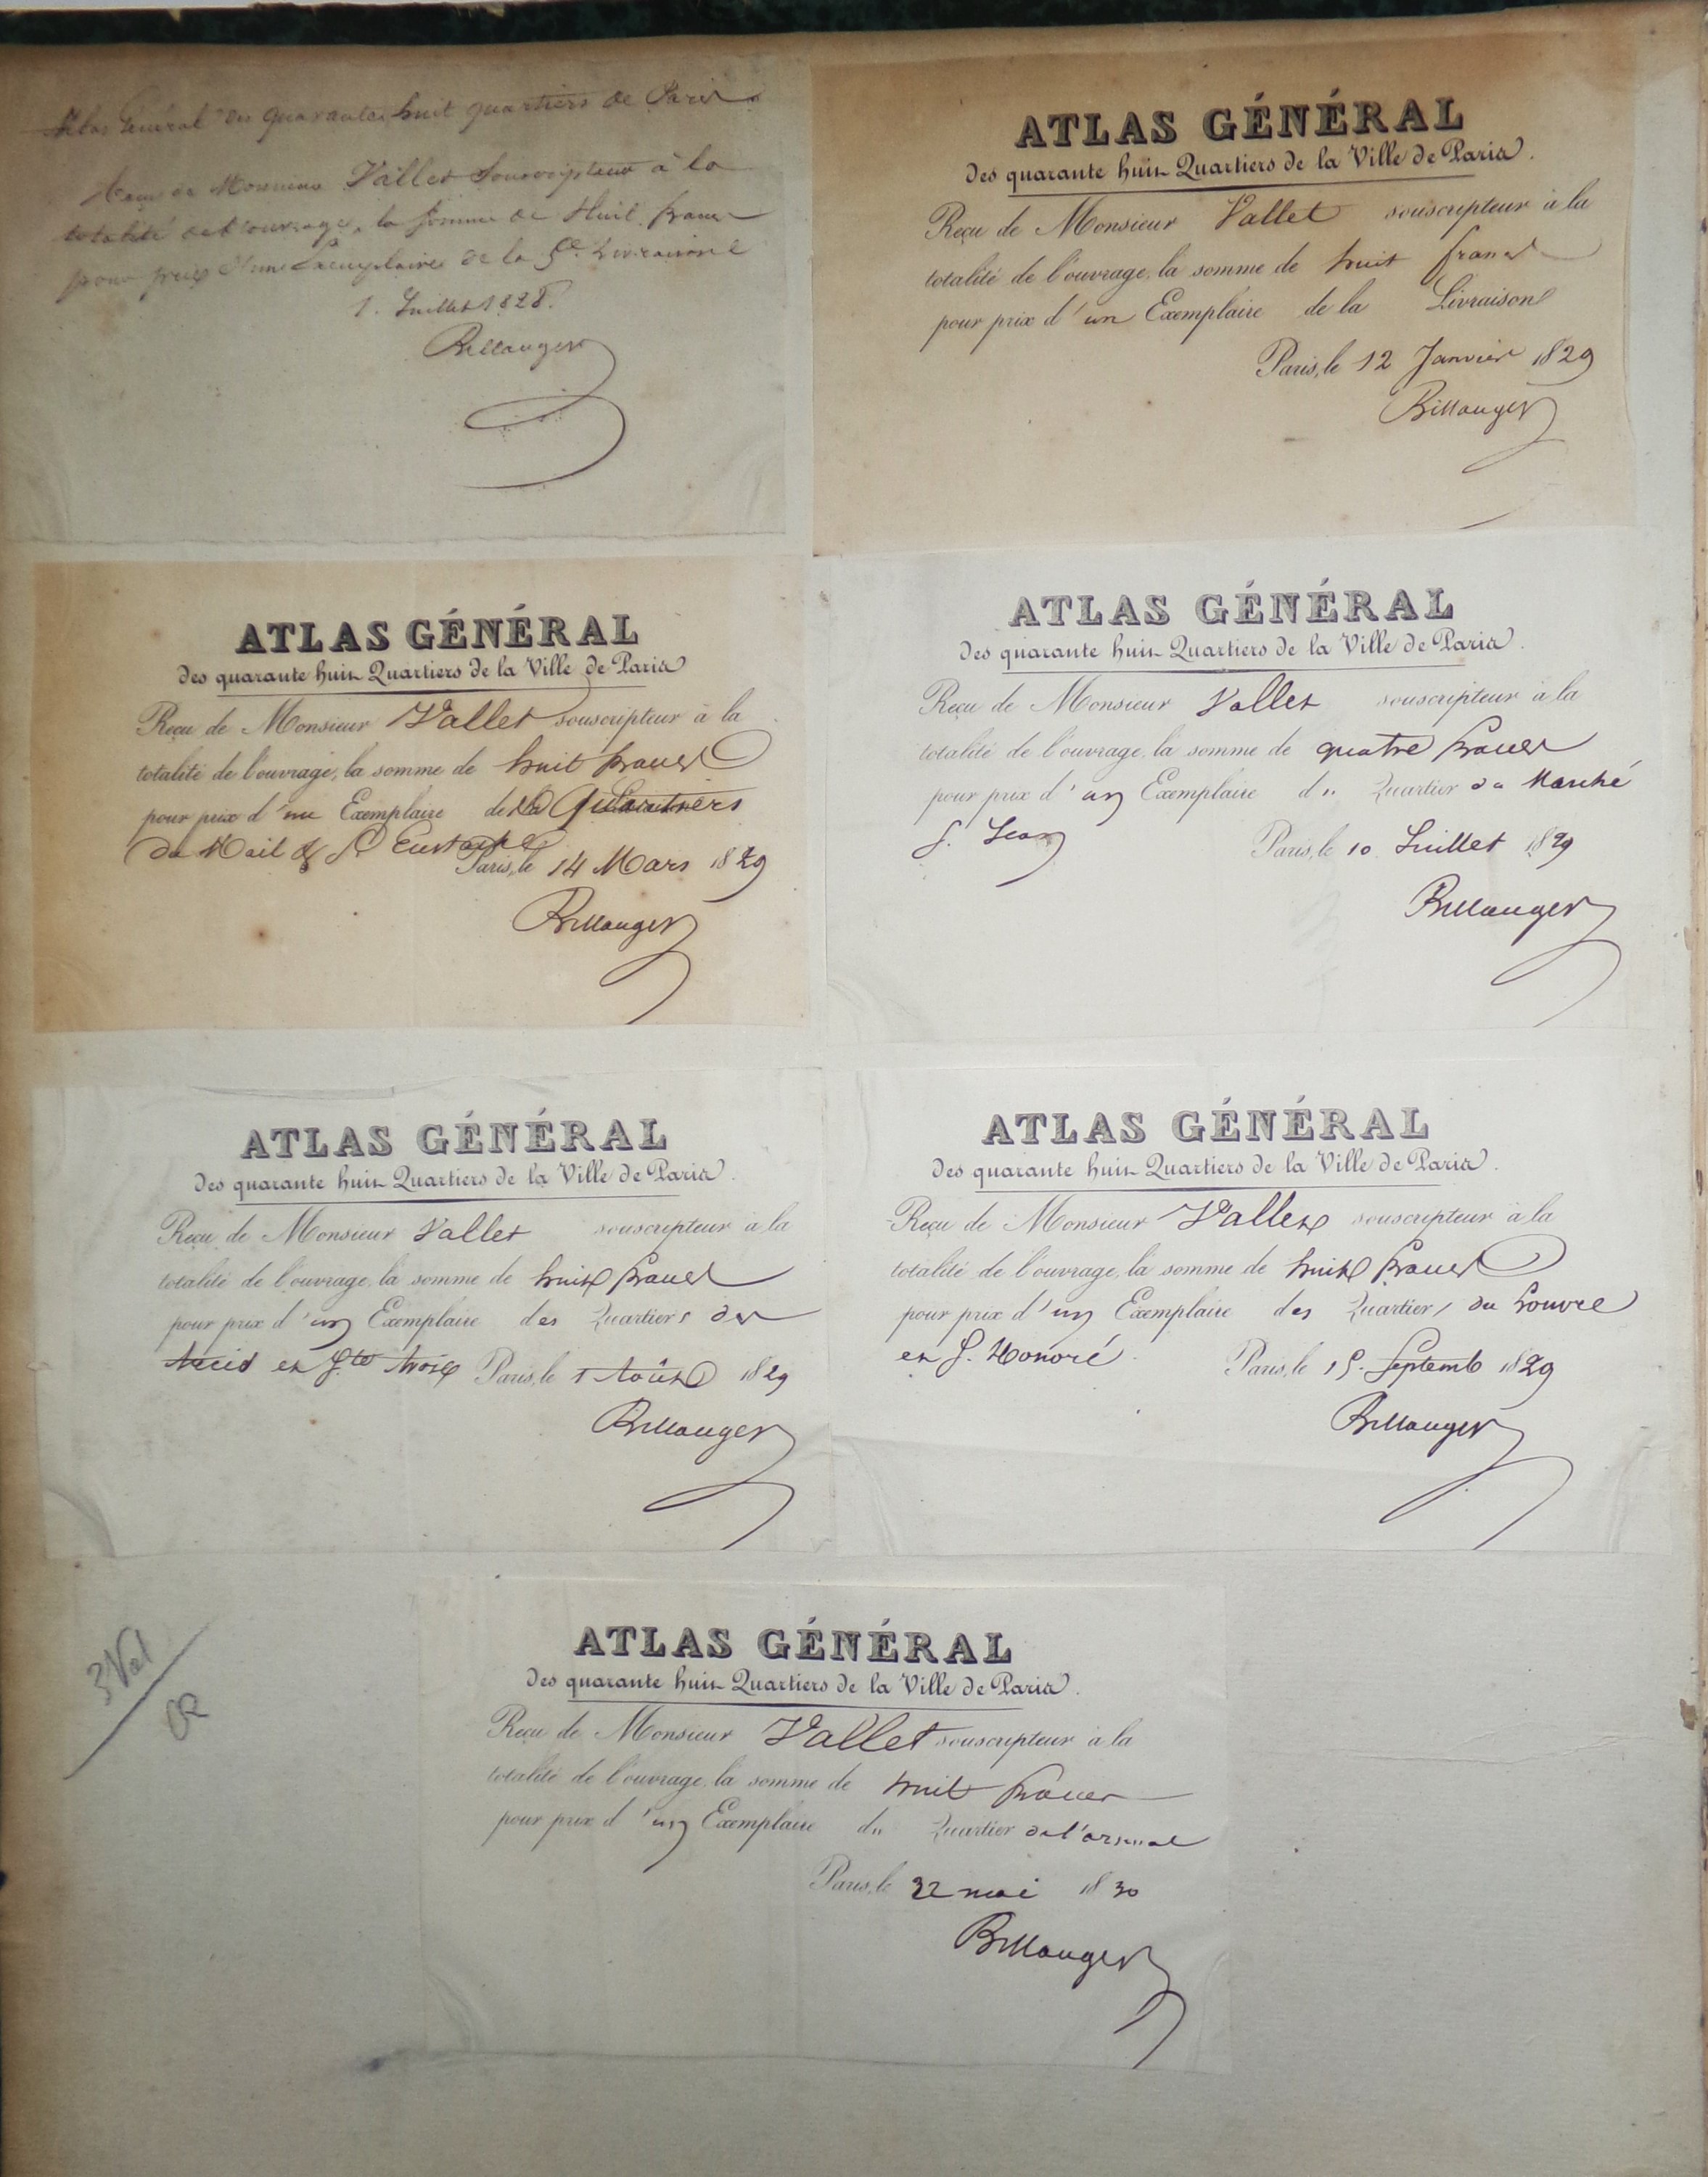 Atlas Général des quarante huit quartiers de Paris
Reçu de Monsieur Vallet Souscripteur à la
totalité de l'ouvrage, la somme de Huit francs
pour prix d'un Exemplaire de la 5e. Livraison
1. Juillet 1828.
Billanger
ATLAS GÉNÉRAL
des quarante huit Quartiers de la Ville de Paris.
Reçu de Monsieur Vallet souscripteur à la
totalité de l'ouvrage, la somme de huit francs
pour prix d'un Exemplaire de la Livraison
Paris, le 12 Janvier 1829
Billanger
ATLAS GÉNÉRAL
des quarante huit Quartiers de la Ville de Paris
Reçu de Monsieur Vallet souscripteur à la
totalité de l'ouvrage, la somme de huit francs
pour prix d'un Exemplaire des Quartiers
du Mail & St Eustache
Paris, le 14 Mars 1829
Billanger
ATLAS GÉNÉRAL
des quarante huit Quartiers de la Ville de Paris.
Reçu de Monsieur Vallet souscripteur à la
totalité de l'ouvrage, la somme de quatre francs
pour prix d'un Exemplaire du Quartier du Marché
S. Jean Paris, le 10 Juillet 1829
Billanger
ATLAS GÉNÉRAL
des quarante huit Quartiers de la Ville de Paris.
Reçu de Monsieur Vallet souscripteur à la
totalité de l'ouvrage, la somme de huit francs
pour prix d'un Exemplaire des Quartiers des
Arcis et Ste Avoie Paris, le 1 Août 1829
Billanger
ATLAS GÉNÉRAL
des quarante huit Quartiers de la Ville de Paris.
Reçu de Monsieur Vallet souscripteur à la
totalité de l'ouvrage, la somme de huit francs
pour prix d'un Exemplaire des Quartiers du Louvre
et S. Honoré. Paris, le 15. Septemb 1829
Billanger
ATLAS GÉNÉRAL
des quarante huit Quartiers de la Ville de Paris.
Reçu de Monsieur Vallet souscripteur à la
totalité de l'ouvrage, la somme de huit francs
pour prix d'un Exemplaire du Quartier de l'arsenal
Paris, le 22 mai 1830
Billanger
3 Vol